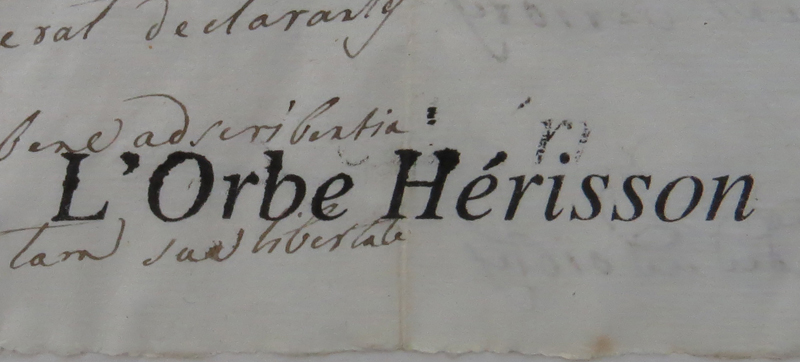 erat declarant
bene adscribentia
L'Orbe Hérisson
tam sua libertate